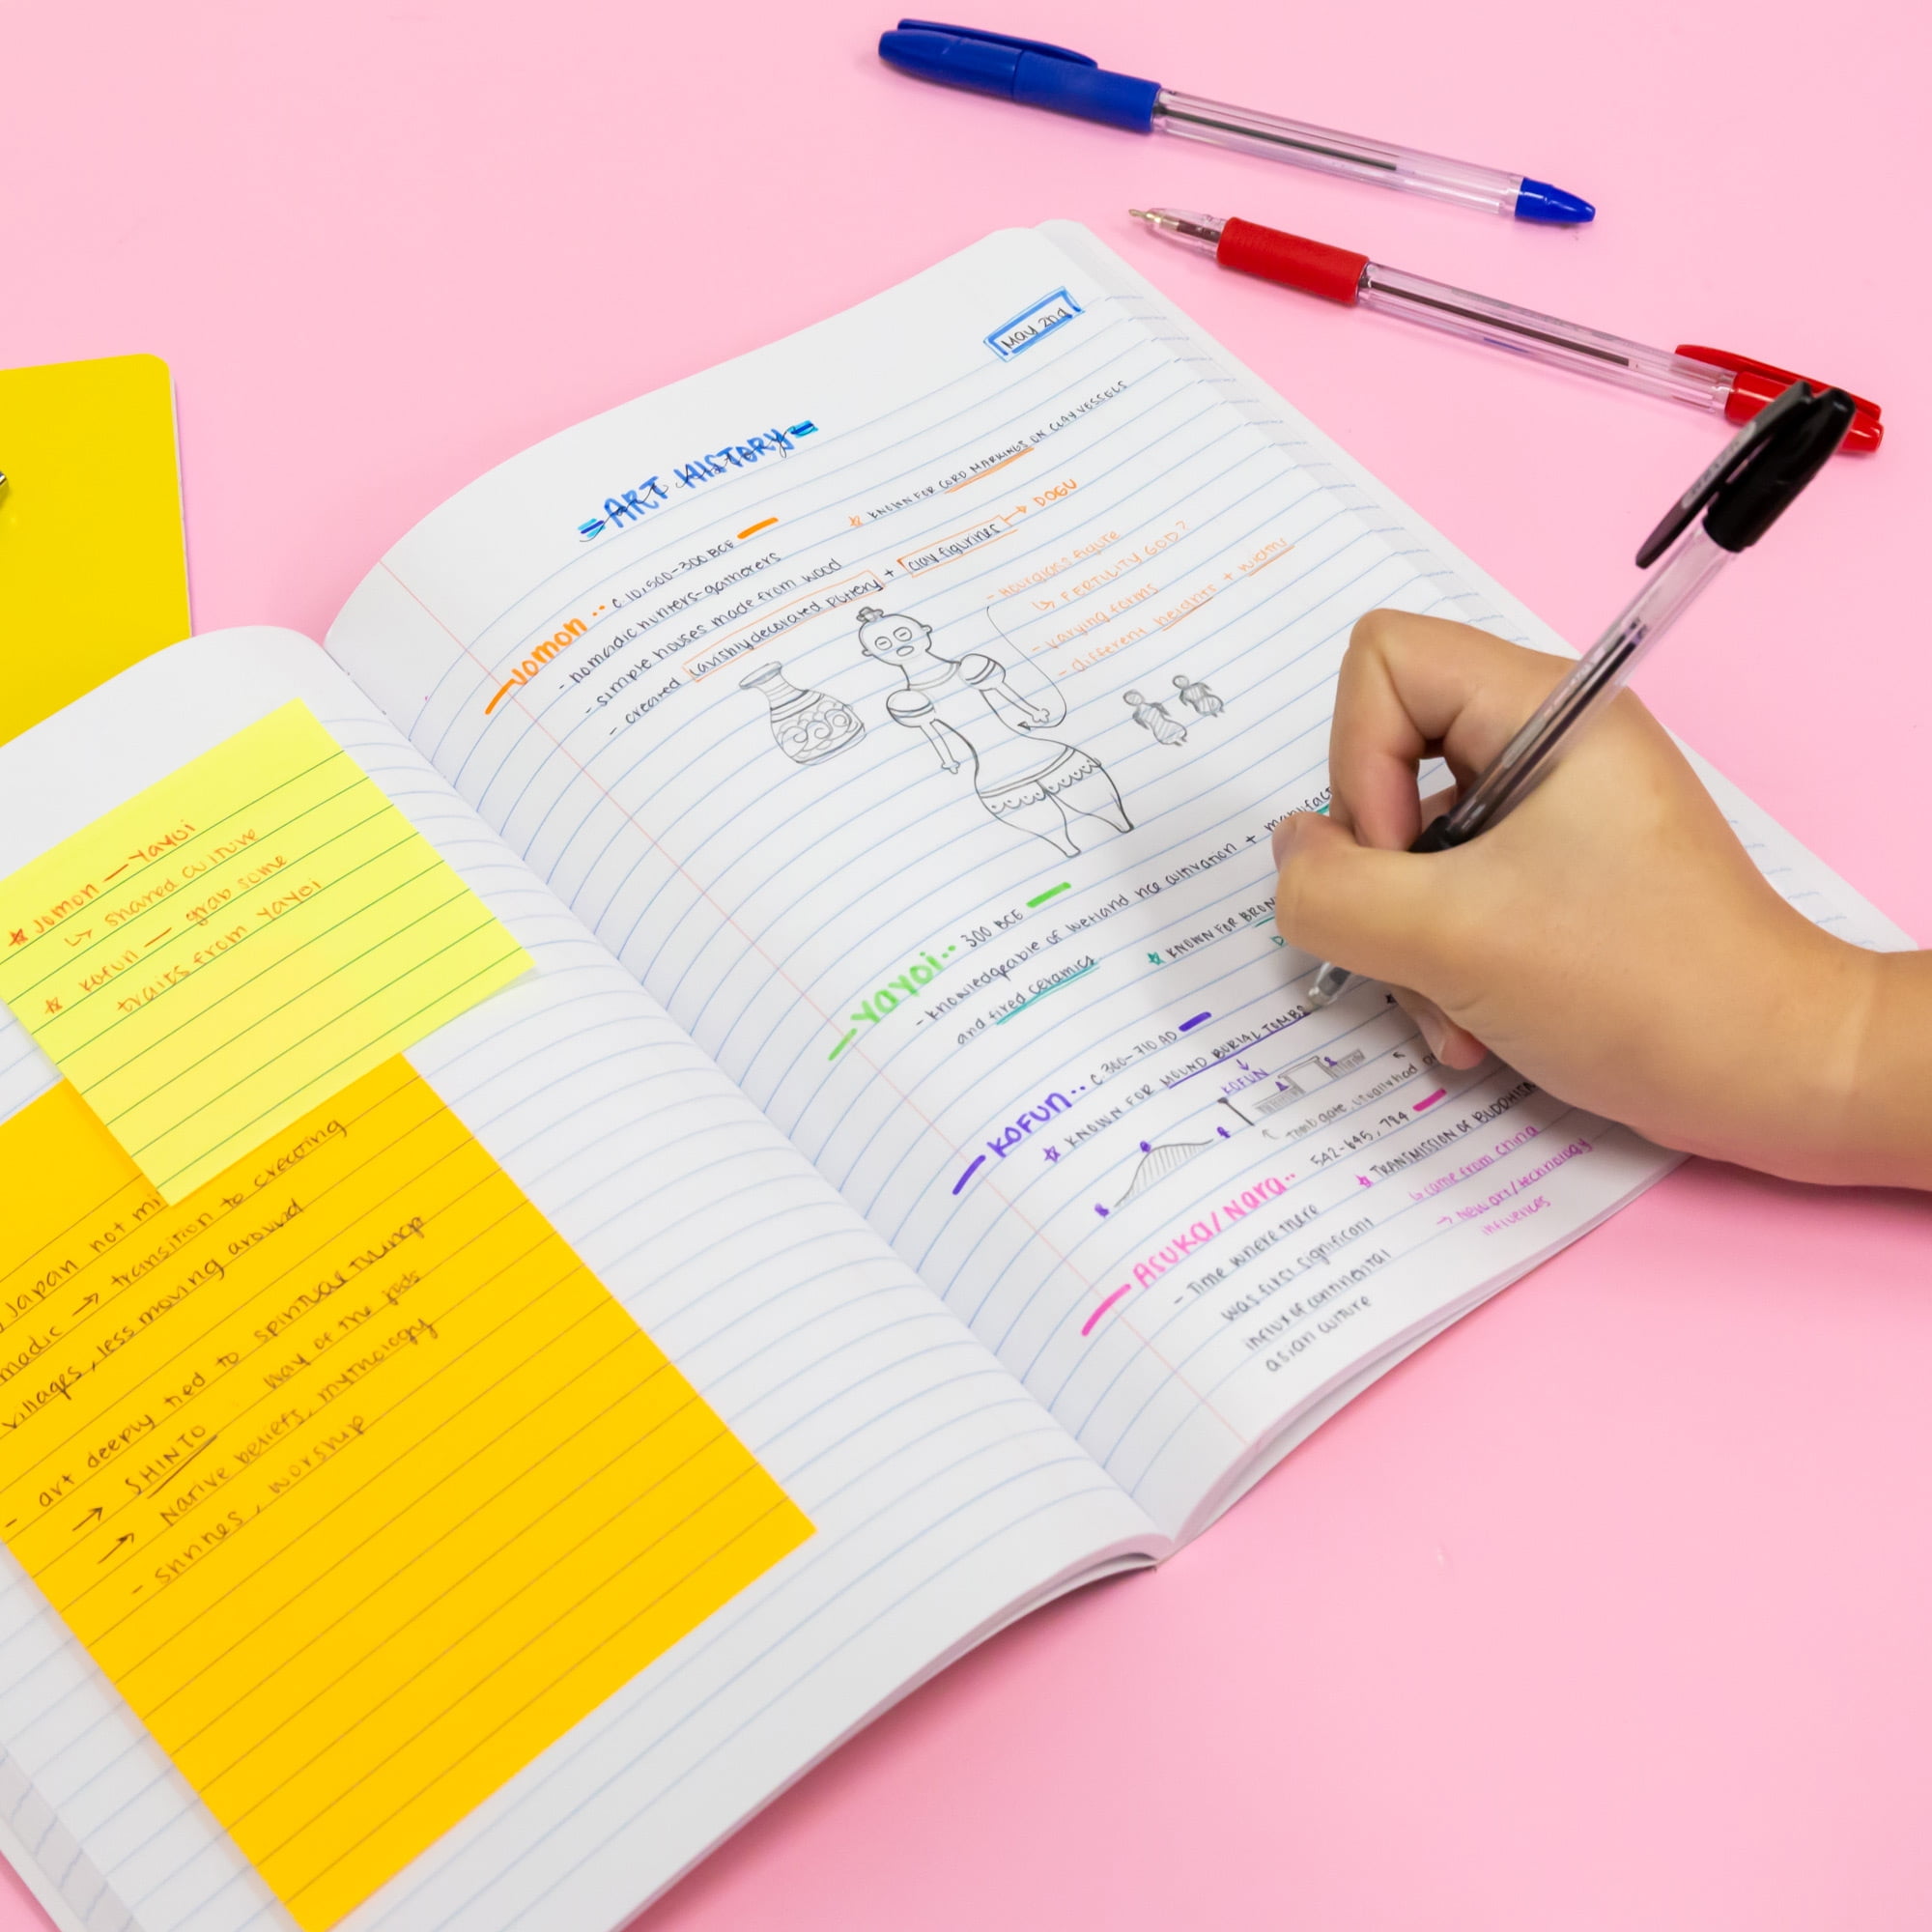 ★ Jomon — Yayoi
↳ shared culture
★ Kofun — grab some
traits from Yayoi
Japan not mi
madic → transition to creating
villages, less moving around
- art deeply tied to spiritual things
→ SHINTO way of the gods
→ Native beliefs, mythology
- shrines, worship
May 2nd
ART HISTORY
art history
Jomon .. C. 10,500-300 BCE
- nomadic hunters-gatherers
- simple houses made from wood
- created lavishly decorated pottery + clay figurines → DOGU
★ KNOWN FOR CORD MARKINGS ON CLAY VESSELS
- Hourglass figure
↳ FERTILITY GOD?
- varying forms
- different heights + widths
Yayoi .. 300 BCE
- knowledgeable of wetland rice cultivation + manufact
and fired ceramics
★ KNOWN FOR BRON
KOFUN .. C. 300-710 AD
★ KNOWN FOR MOUND BURIAL TOMBS
↓
KOFUN
ASUKA/Nara .. 542-645, 784
- Time where there
was first significant
influx of continental
asian culture
★ TRANSMISSION OF BUDDHISM
↳ came from China
→ New art/technology
influences